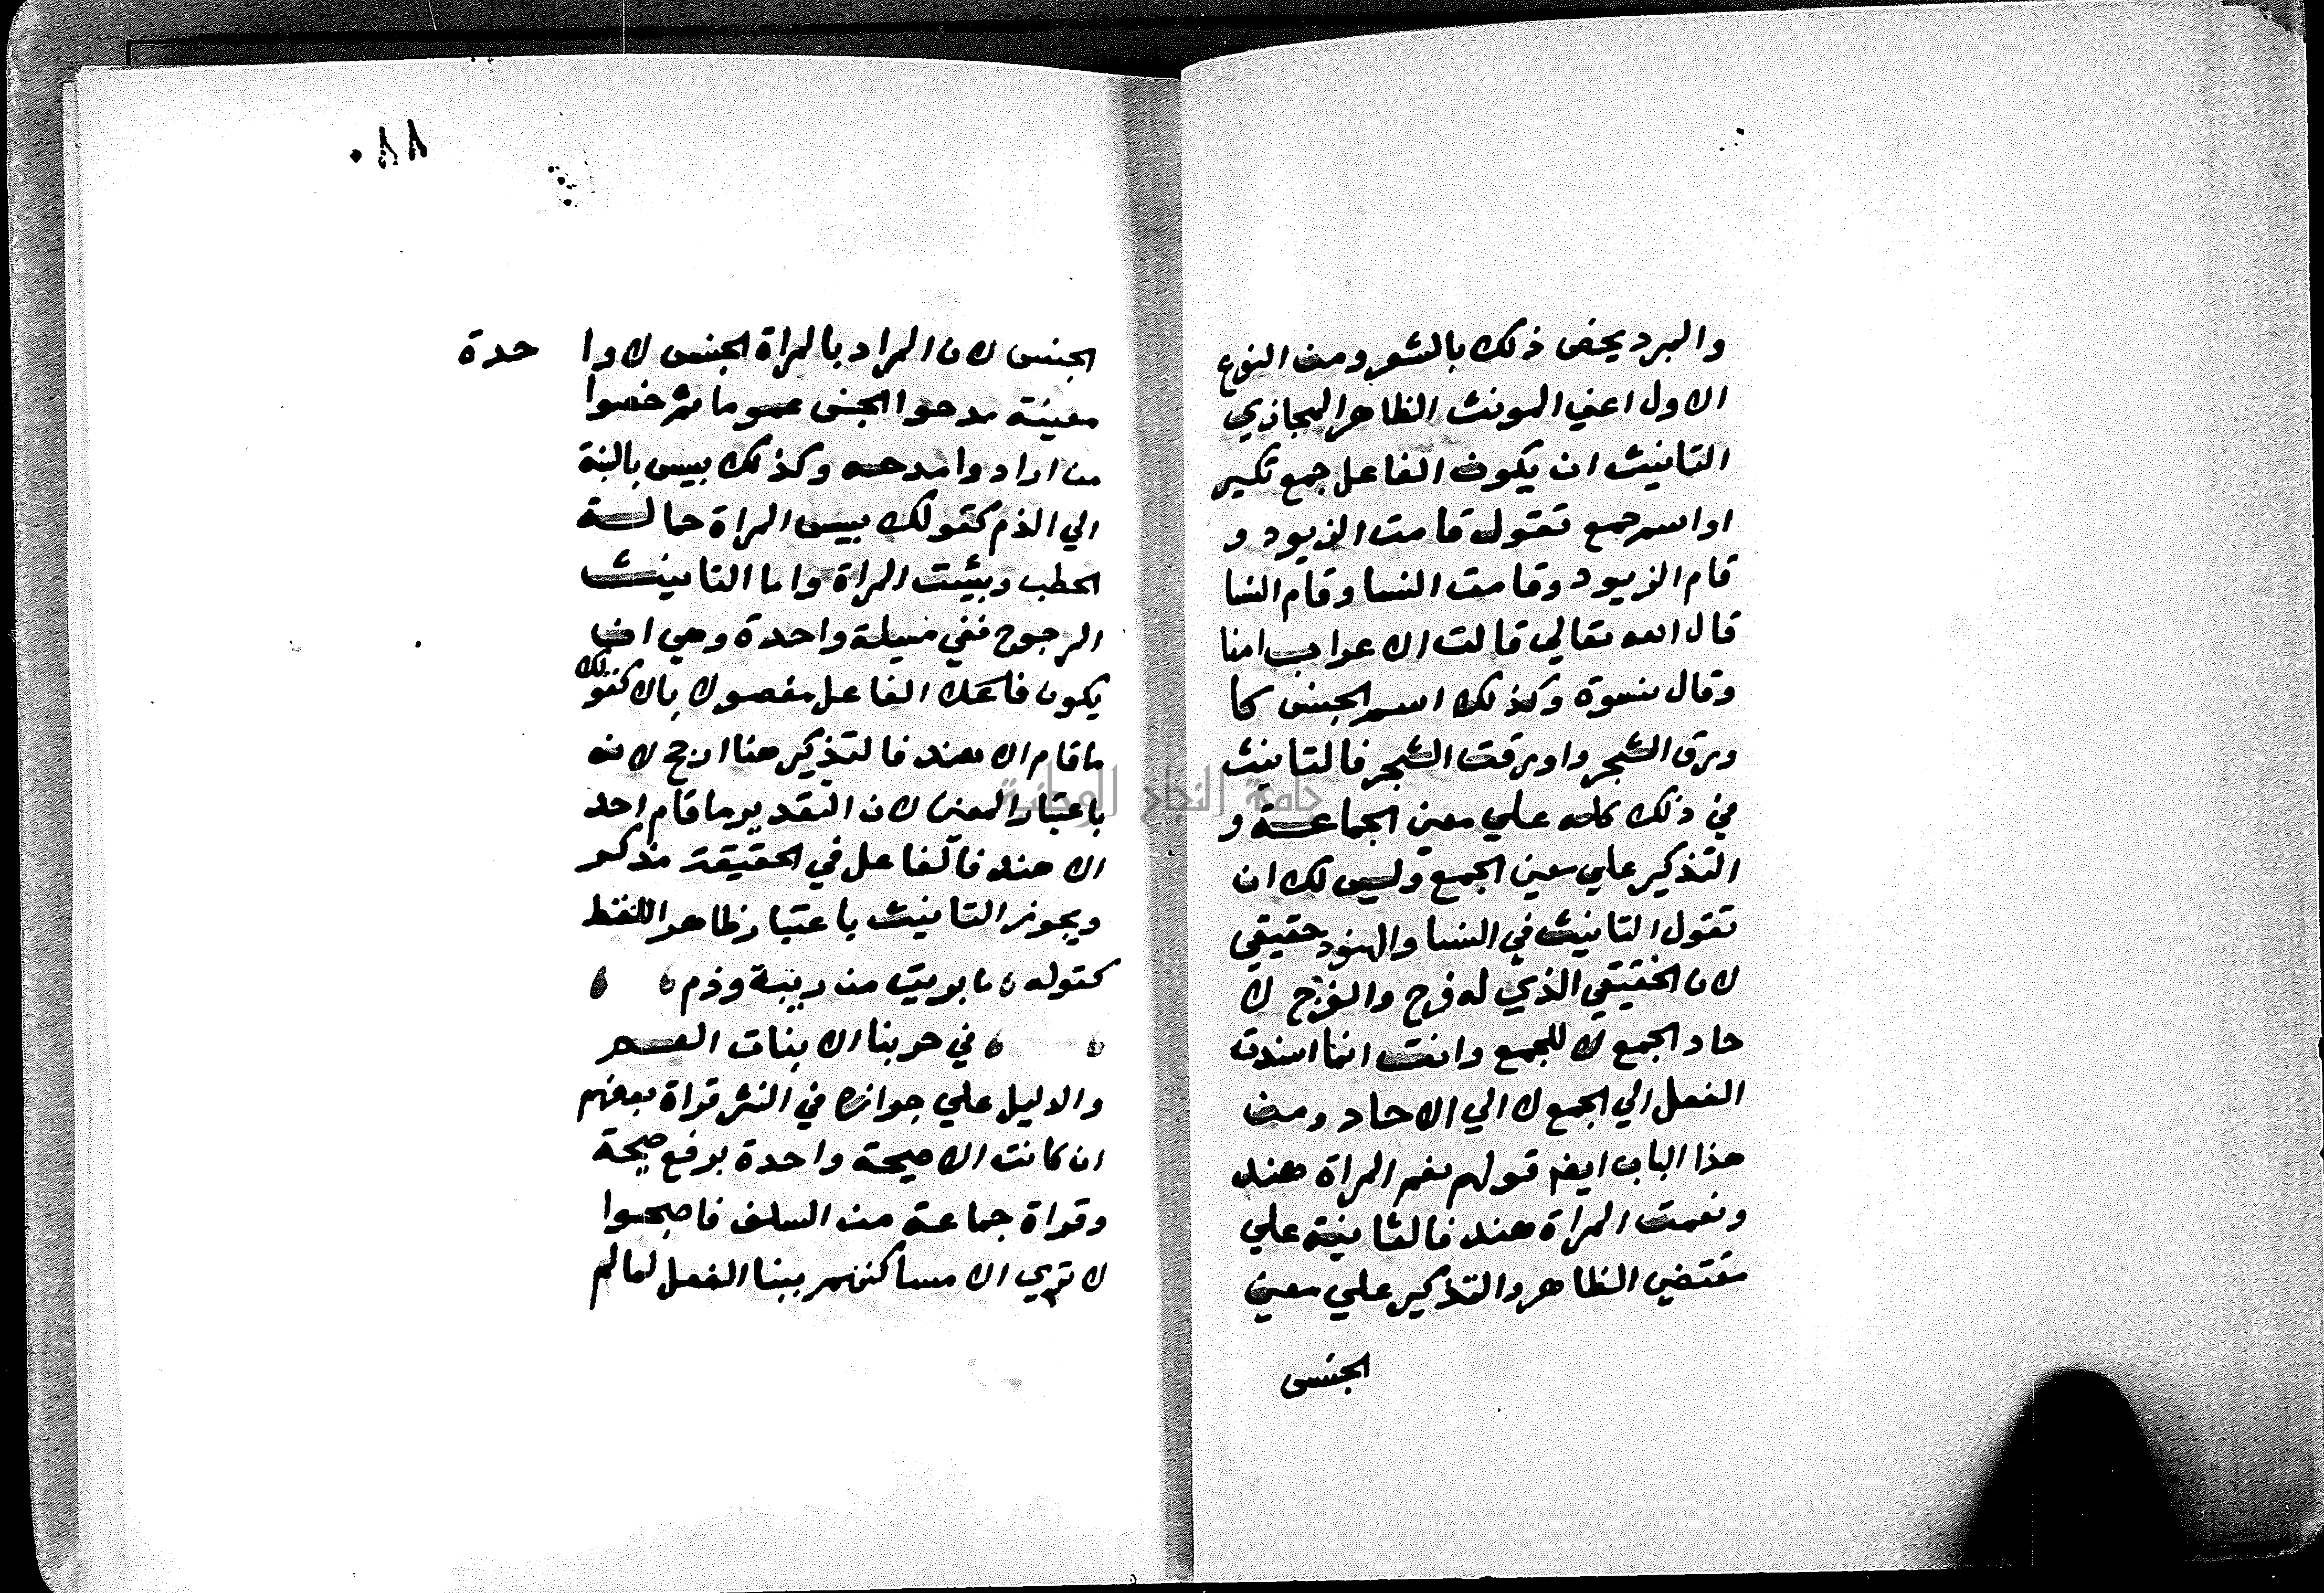 والمبرد يخص ذلك بالشعر ومن النوع
الاول اعني المونث الظاهر المجازي
التانيث ان يكون الفاعل جمع تكسير
او اسم جمع تقول قامت الزيود و
قام الزيود وقامت النسا وقام النسا
قال الله تعالي قالت الاعراب امنا
وقال نسوة وكذلك اسم الجنس كا
ورق الشجر واورقت الشجر فالتانيث
في ذلك كله علي معني الجماعة و
التذكير علي معني الجمع وليس لك ان
تقول التانيث في النسا والهنود حقيقي
لان الحقيقي الذي له فرج والفرج لا
حاد الجمع لا للجمع وانت انما اسندت
الفعل الي الجمع لا الي الاحاد ومن
هذا الباب ايضا قولهم نعم المراة هند
ونعمت المراة هند فالتانيث علي
مقتضي الظاهر والتذكير علي معني
الجنس
٨٨
الجنس لان المراد بالمراة الجنس لا وا حدة
معينة مدحوا الجنس عموما ثم خصوا
من ارادوا مدحه وكذلك بيس بالنسبة
الي الذم كقولك بيس المراة حمالة
الحطب وبئيت المراة واما التانيث
المرجوح ففي مسيلة واحدة وهي ان
يكون الفاعل مفصولا بالا كقولك
ما قام الا هند فالتذكير هنا ارجح لانه
باعتبار المعني لان التقدير ما قام احد
الا هند فالفاعل في الحقيقة مذكر
ويجوز التانيث باعتبار ظاهر اللفظ
كقوله ما بريت من ريبة وذم
في حربنا الا بنات العم
والدليل علي جوازه في النثر قراة بعضهم
ان كانت الا صيحة واحدة برفع صيحة
وقراة جماعة من السلف فاصبحوا
لا تري الا مساكنهم ببنا الفعل لما لم
جامعة النجاح الوطنية